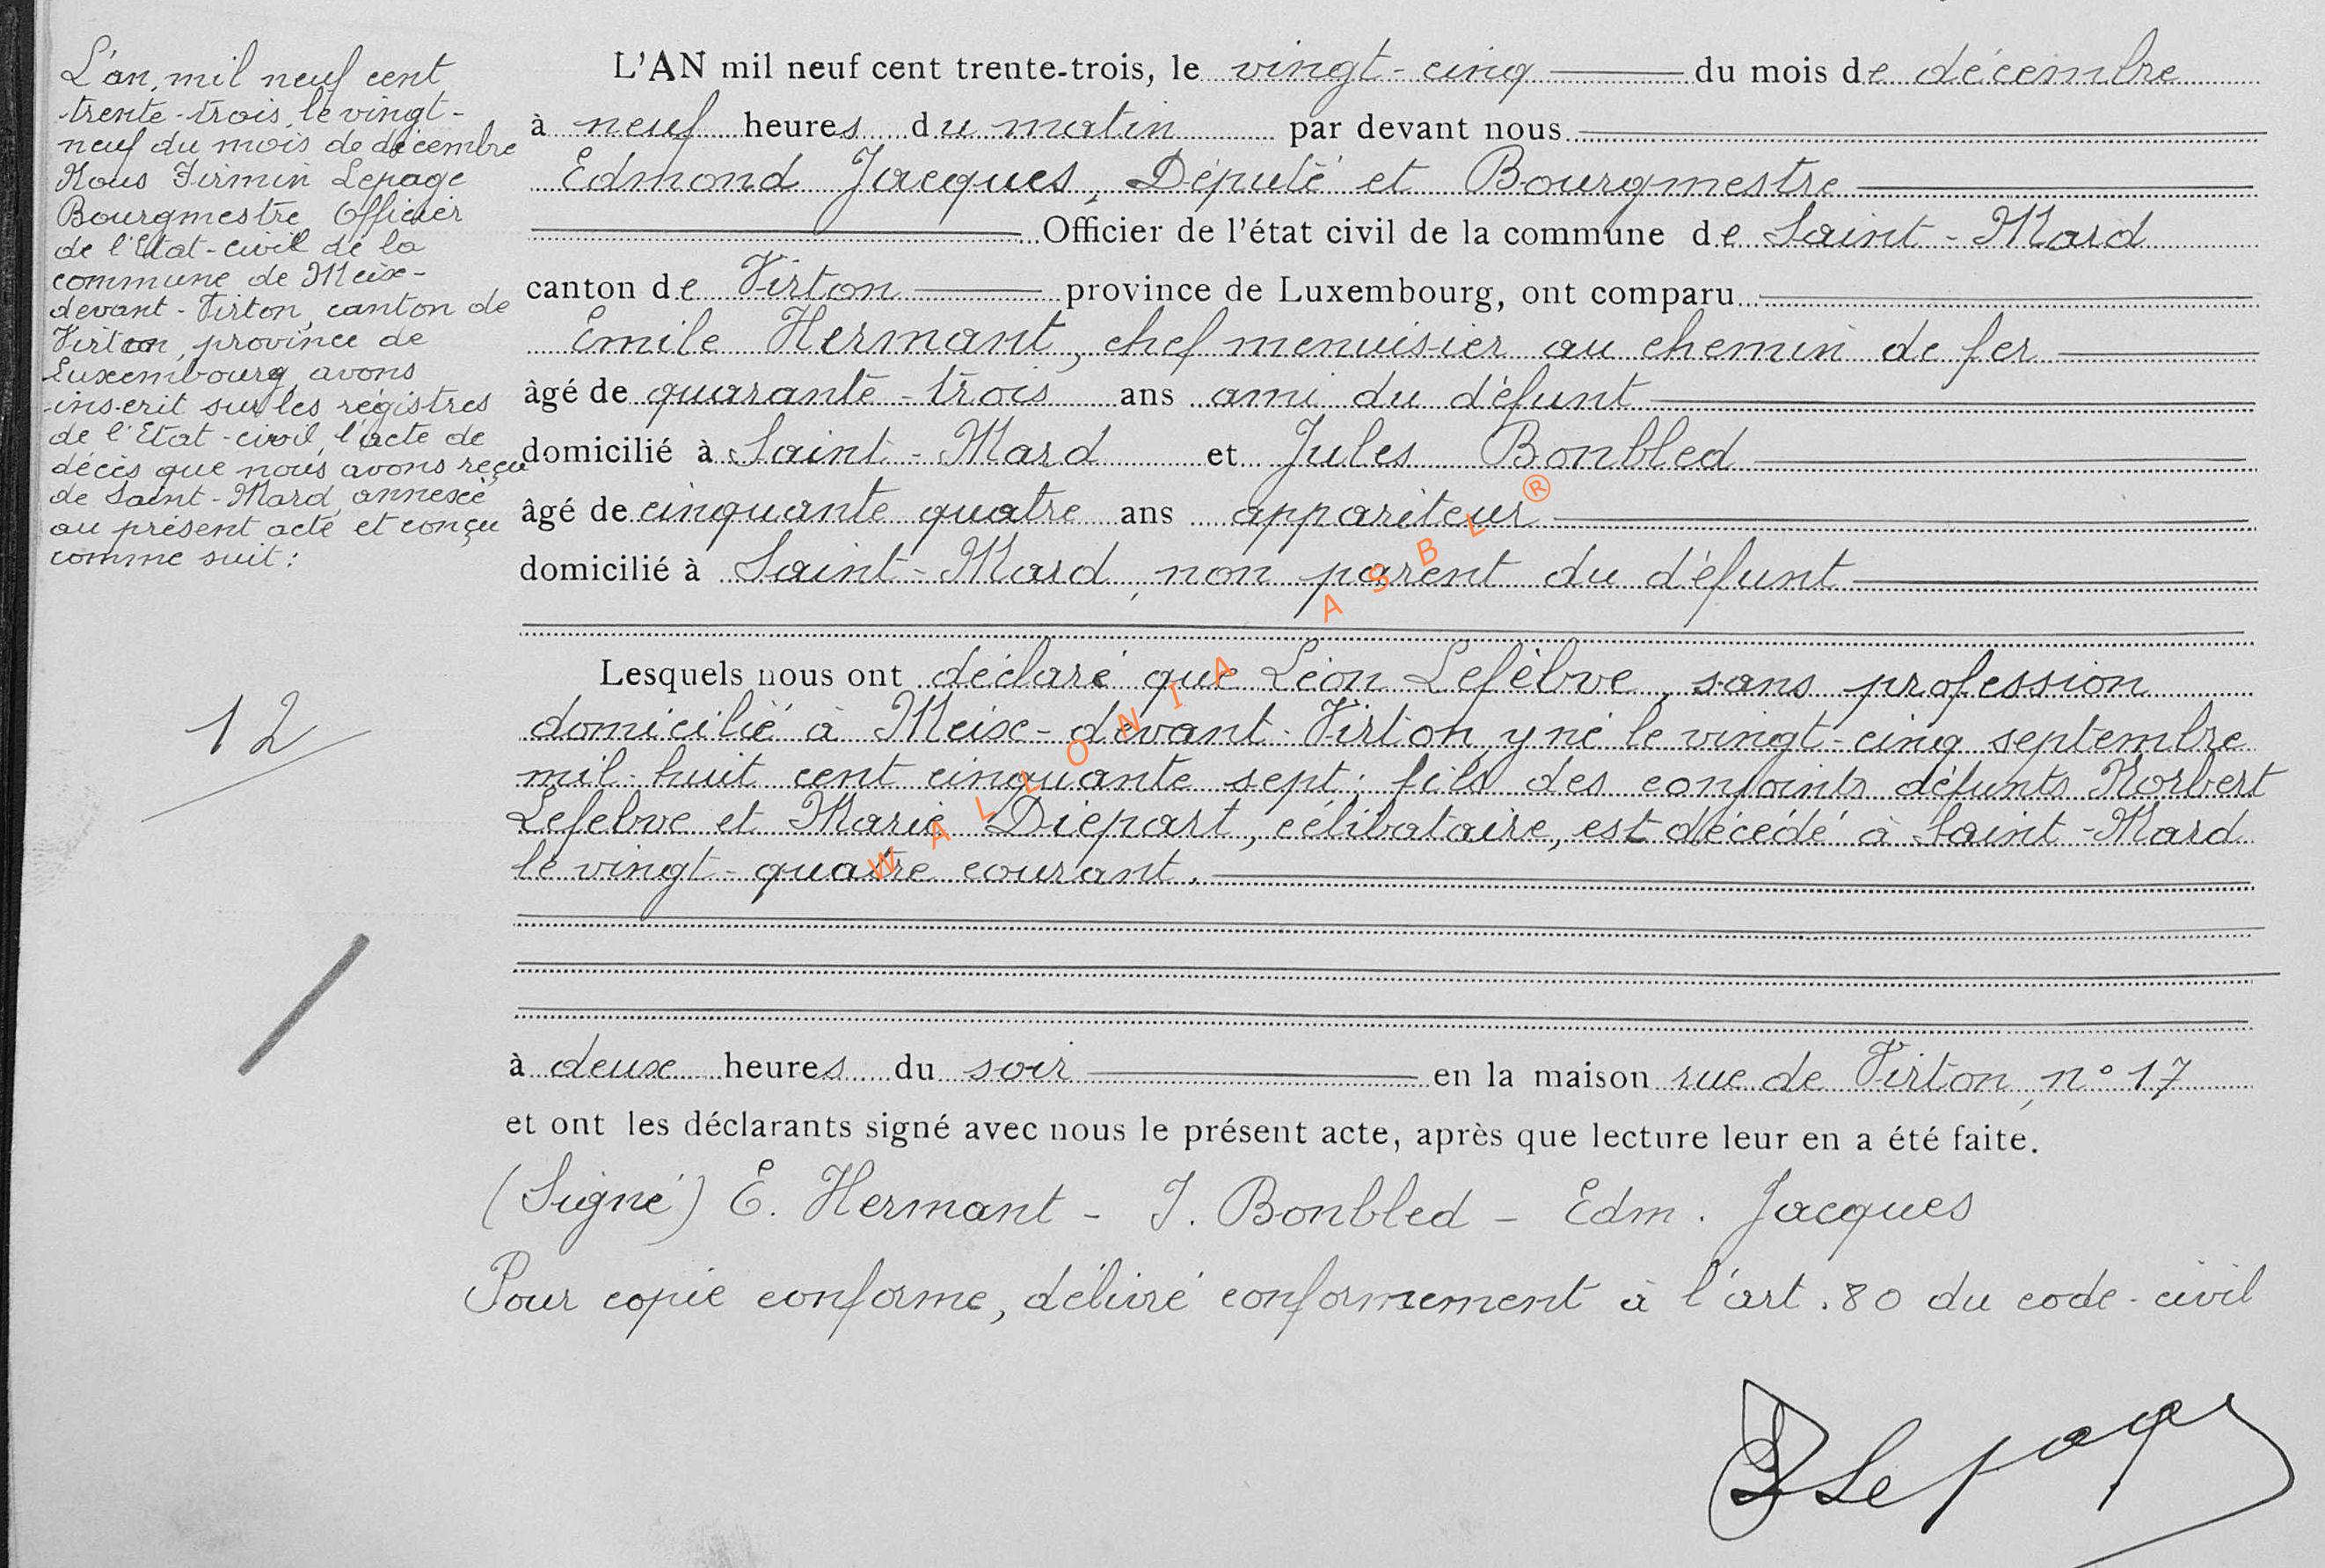 L'an, mil neuf cent
trente-trois, le vingt-
neuf du mois de décembre
Nous Firmin Lepage
Bourgmestre Officier
de l'Etat-civil de la
commune de Meix-
devant-Virton, canton de
Virton, province de
Luxembourg, avons
inscrit sur les régistres
de l'Etat-civil, l'acte de
décès que nous avons reçu
de Saint-Mard, annexé
au présent acte et conçu
comme suit :
12
L'AN mil neuf cent trente-trois, le vingt-cinq du mois de décembre
à neuf heures du matin par devant nous
Edmond Jacques, Député et Bourgmestre
Officier de l'état civil de la commune de Saint-Mard
canton de Virton province de Luxembourg, ont comparu
Emile Hermant, chef menuisier au chemin de fer
âgé de quarante-trois ans ami du défunt
domicilié à Saint-Mard et Jules Bonbled
âgé de cinquante quatre ans appariteur
domicilié à Saint-Mard, non parent du défunt
Lesquels nous ont déclaré que Léon Lefèbve, sans profession
domicilié à Meix-devant-Virton, y né le vingt-cinq septembre
mil-huit cent cinquante sept; fils des conjoints défunts Norbert
Lefebve et Marie Diépart, célibataire, est décédé à Saint-Mard
le vingt-quatre courant.
à deux heures du soir en la maison rue de Virton, n° 17
et ont les déclarants signé avec nous le présent acte, après que lecture leur en a été faite.
(Signé) E. Hermant - J. Bonbled - Edm. Jacques
Pour copie conforme, délivré conformement à l'art. 80 du code-civil
Lepage
WALLONIA ASBL ®